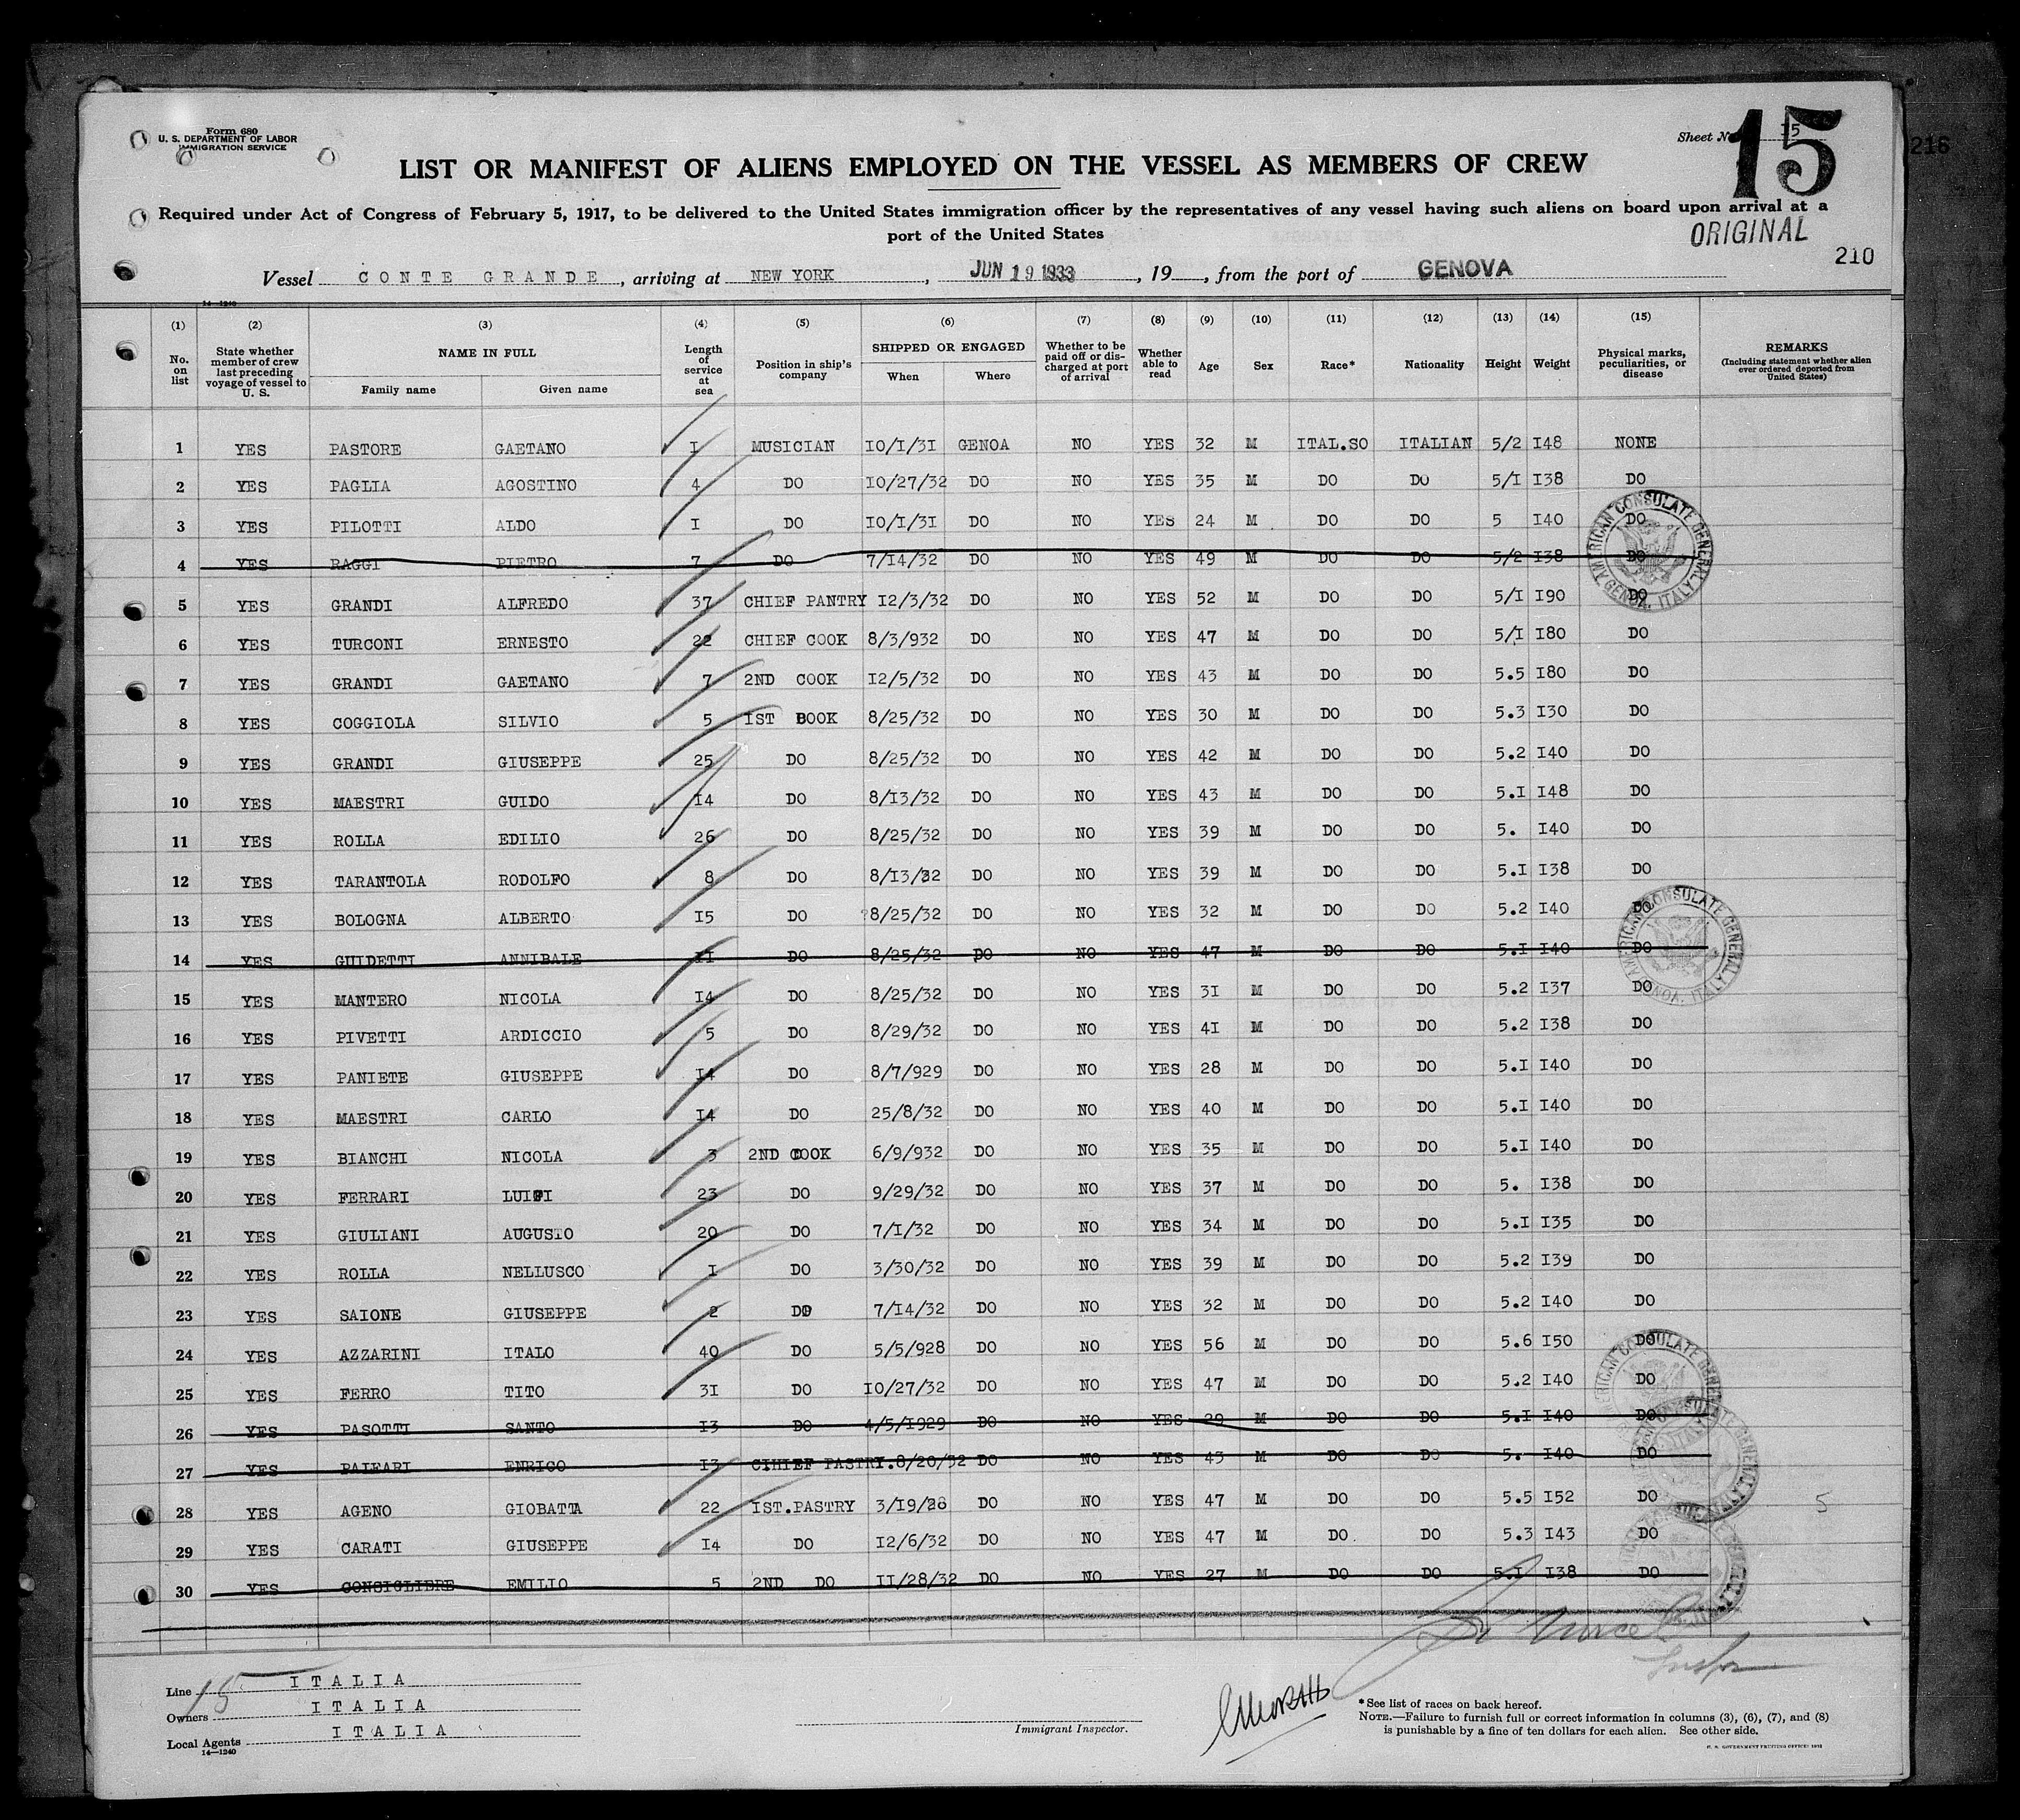 Form 680
U. S. DEPARTMENT OF LABOR
IMMIGRATION SERVICE
Sheet No. 15
15
216
LIST OR MANIFEST OF ALIENS EMPLOYED ON THE VESSEL AS MEMBERS OF CREW
Required under Act of Congress of February 5, 1917, to be delivered to the United States immigration officer by the representatives of any vessel having such aliens on board upon arrival at a
port of the United States
ORIGINAL
210
Vessel CONTE GRANDE, arriving at NEW YORK, JUN 19 1933, 19, from the port of GENOVA
14—1240
(1) (2) (3) (4) (5) (6) (7) (8) (9) (10) (11) (12) (13) (14) (15)
No. on list
State whether member of crew last preceding voyage of vessel to U. S.
NAME IN FULL
Family name
Given name
Length of service at sea
Position in ship's company
SHIPPED OR ENGAGED
When
Where
Whether to be paid off or discharged at port of arrival
Whether able to read
Age
Sex
Race*
Nationality
Height
Weight
Physical marks, peculiarities, or disease
REMARKS
(Including statement whether alien ever ordered deported from United States)
1 YES PASTORE GAETANO I MUSICIAN IO/I/3I GENOA NO YES 32 M ITAL.SO ITALIAN 5/2 I48 NONE
2 YES PAGLIA AGOSTINO 4 DO IO/27/32 DO NO YES 35 M DO DO 5/I I38 DO
3 YES PILOTTI ALDO I DO IO/I/3I DO NO YES 24 M DO DO 5 I40 DO
4 YES RAGGI PIETRO 7 DO 7/I4/32 DO NO YES 49 M DO DO 5/2 I38 DO
5 YES GRANDI ALFREDO 37 CHIEF PANTRY I2/3/32 DO NO YES 52 M DO DO 5/I I90 DO
6 YES TURCONI ERNESTO 22 CHIEF COOK 8/3/932 DO NO YES 47 M DO DO 5/I I80 DO
7 YES GRANDI GAETANO 7 2ND COOK I2/5/32 DO NO YES 43 M DO DO 5.5 I80 DO
8 YES COGGIOLA SILVIO 5 IST COOK 8/25/32 DO NO YES 30 M DO DO 5.3 I30 DO
9 YES GRANDI GIUSEPPE 25 DO 8/25/32 DO NO YES 42 M DO DO 5.2 I40 DO
10 YES MAESTRI GUIDO I4 DO 8/I3/32 DO NO YES 43 M DO DO 5.I I48 DO
11 YES ROLLA EDILIO 26 DO 8/25/32 DO NO YES 39 M DO DO 5. I40 DO
12 YES TARANTOLA RODOLFO 8 DO 8/I3/32 DO NO YES 39 M DO DO 5.I I38 DO
13 YES BOLOGNA ALBERTO I5 DO 8/25/32 DO NO YES 32 M DO DO 5.2 I40 DO
14 YES GUIDETTI ANNIBALE II DO 8/25/32 DO NO YES 47 M DO DO 5.I I40 DO
15 YES MANTERO NICOLA I4 DO 8/25/32 DO NO YES 3I M DO DO 5.2 I37 DO
16 YES PIVETTI ARDICCIO 5 DO 8/29/32 DO NO YES 4I M DO DO 5.2 I38 DO
17 YES PANIETE GIUSEPPE I4 DO 8/7/929 DO NO YES 28 M DO DO 5.I I40 DO
18 YES MAESTRI CARLO I4 DO 25/8/32 DO NO YES 40 M DO DO 5.I I40 DO
19 YES BIANCHI NICOLA 3 2ND COOK 6/9/932 DO NO YES 35 M DO DO 5.I I40 DO
20 YES FERRARI LUIGI 23 DO 9/29/32 DO NO YES 37 M DO DO 5. I38 DO
21 YES GIULIANI AUGUSTO 20 DO 7/I/32 DO NO YES 34 M DO DO 5.I I35 DO
22 YES ROLLA NELLUSCO I DO 3/30/32 DO NO YES 39 M DO DO 5.2 I39 DO
23 YES SAIONE GIUSEPPE 2 DO 7/I4/32 DO NO YES 32 M DO DO 5.2 I40 DO
24 YES AZZARINI ITALO 40 DO 5/5/928 DO NO YES 56 M DO DO 5.6 I50 DO
25 YES FERRO TITO 3I DO IO/27/32 DO NO YES 47 M DO DO 5.2 I40 DO
26 YES PASOTTI SANTO I3 DO 4/5/I929 DO NO YES 29 M DO DO 5.I I40 DO
27 YES ENRICO I3 CIHIEF PASTRY. 8/20/32 DO NO YES 43 M DO DO 5. I40 DO
28 YES AGENO GIOBATTA 22 IST.PASTRY 3/I9/28 DO NO YES 47 M DO DO 5.5 I52 DO
5
29 YES CARATI GIUSEPPE I4 DO I2/6/32 DO NO YES 47 M DO. DO 5.3 I43 DO
30 YES CONSIGLIERE EMILIO 5 2ND DO II/28/32 DO NO YES 27 M DO DO 5.I I38 DO
AMERICAN CONSULATE GENERAL GENOA, ITALY
AMERICAN CONSULATE GENERAL GENOA, ITALY
Line ITALIA
15
Owners ITALIA
Local Agents ITALIA
14—1240
Immigrant Inspector.
*See list of races on back hereof.
NOTE.—Failure to furnish full or correct information in columns (3), (6), (7), and (8)
is punishable by a fine of ten dollars for each alien. See other side.